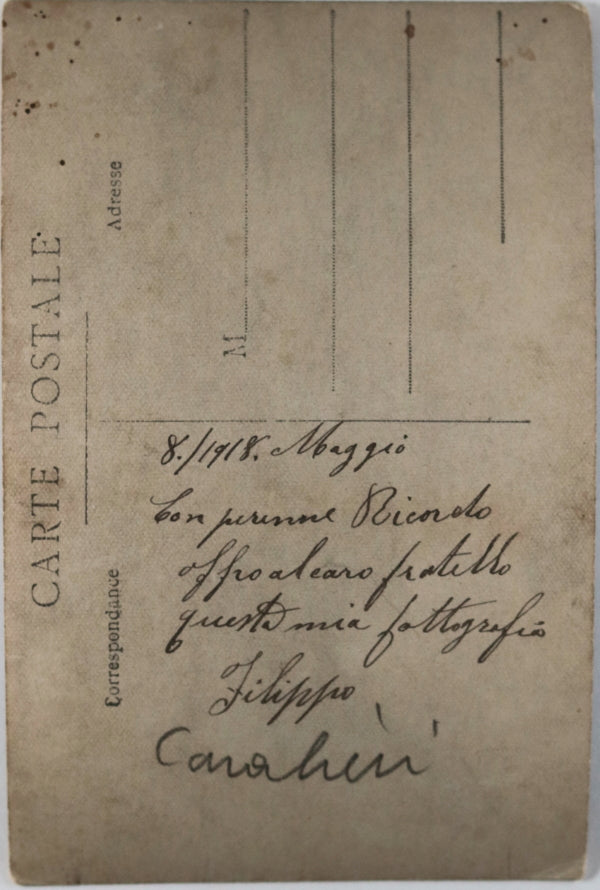 CARTE POSTALE
Correspondance
Adresse
M
8./1918. Maggio
Con perenne Ricordo
offro al caro fratello
questa mia fottografia
Filippo